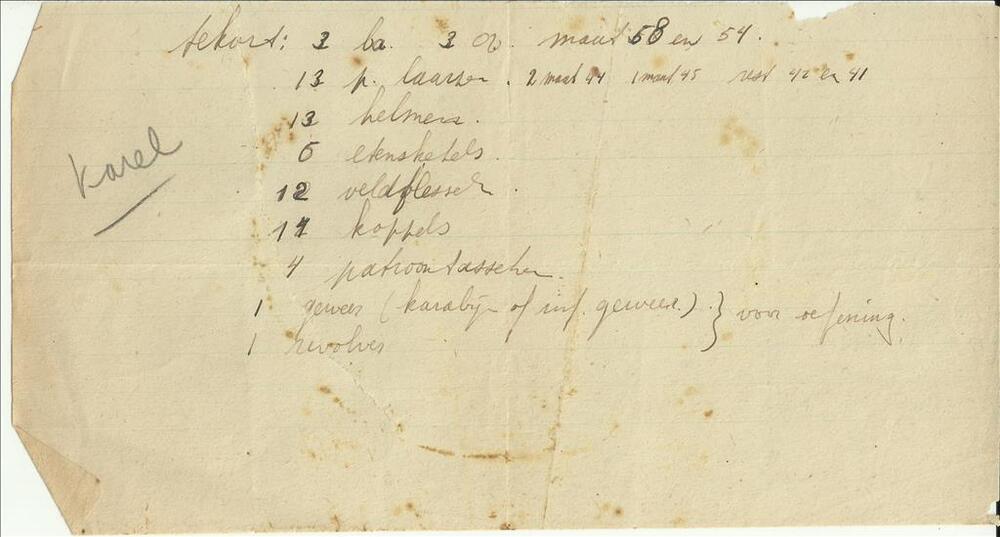 tekort: 3 ba. 3 op. maat 58 en 54.
13 p. laarzen. 2 maat 44 1 maat 45 rest 42 en 41
13 helmen.
Karel
6 etensketels.
12 veldflesschen.
14 koppels
4 patroontasschen.
1 geweer (karabijn of inf. geweer.) } voor oefening.
1 revolver